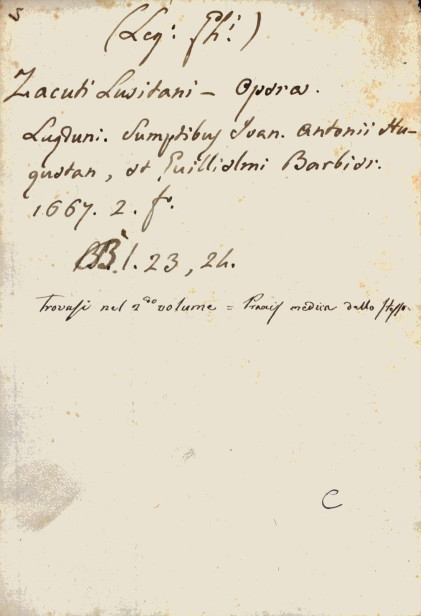 5
(Leg: Ph:)
Zacuti Lusitani - Opera.
Lugduni. Sumptibus Ioan. Antonii Hu-
guetan, et Guillielmi Barbier.
1667. 2. f.
BB. l. 23, 24.
Trovasi nel 2do volume = Praxis medica dello stesso.
C